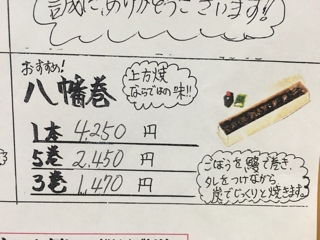 誠にありがとうございます!!
おすすめ!
八幡巻
上方焼
ならではの味!!
1本 4,250 円
5巻 2,450 円
3巻 1,470 円
ごぼうを鰻で巻き、
タレをつけながら
炭でじっくりと焼きます。